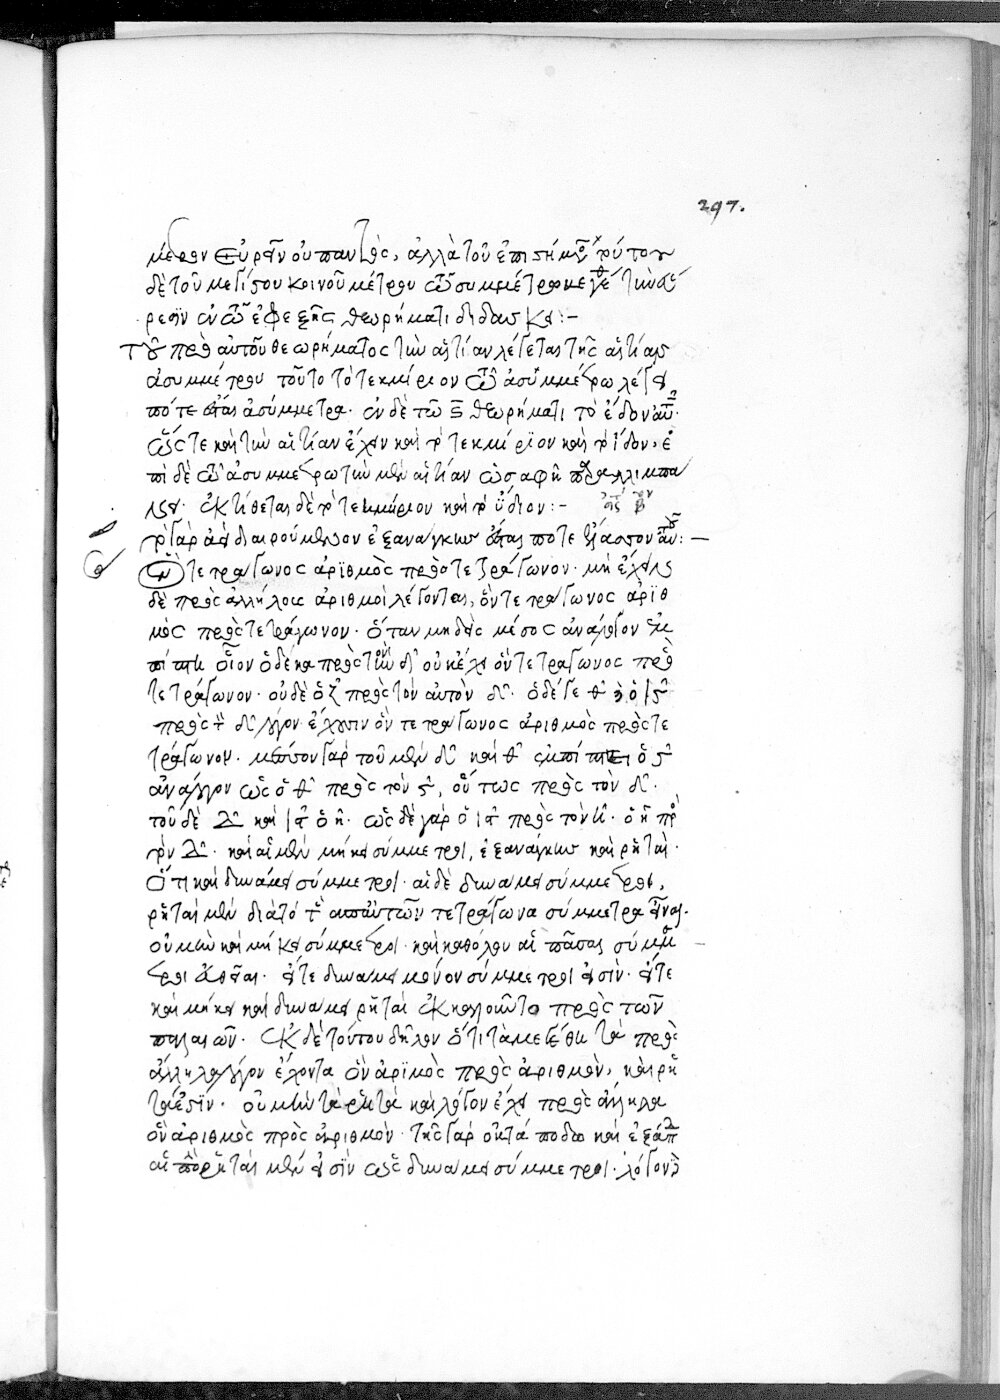 297.
μέτρον εὑρεῖν οὐ παντὸς, ἀλλὰ τοῦ ἐπὶ
δὲ τοῦ μεγίστου κοινοῦ μέτρου συμμέτρου μεγέ τὴν
ρεσιν ἐν τῶ ἐφεξῆς θεωρήματι διδάσκει:–
τοῦ πρὸ αὐτοῦ θεωρήματος τὴν αἰτίαν λέγεται τῆς αἰτίας
ἀσυμμέτρου τοῦτο τὸ τεκμήριον τῶ ἀσυμμέτρω λέγει
πότε ἔσται ἀσύμμετρα· ἐν δὲ τῶ θεωρήματι τὸ
ὥστε καὶ τὴν αἰτίαν ἔχειν καὶ τὸ τεκμήριον καὶ τὸ ἴδιον, ἐ
πὶ δὲ τῶ ἀσυμμέτρω τὴν μὲν αἰτίαν ὡς σαφῆ
ἐκτίθεται δὲ τὸ τεκμήριον καὶ τὸ ἴδιον:–
τὸ γὰρ ἀεὶ διαιρούμενον ἐξανάγκης ἔσται ποτε ἔλασσον αὐτοῦ:–
ὃν τετράγωνος ἀριθμὸς πρὸς τετράγωνον· μὴ ἔχειν
δὲ πρὸς ἀλλήλους ἀριθμοὶ λέγονται, ὃν τετράγωνος ἀριθ
μὸς πρὸς τετράγωνον· ὅταν μηδεὶς μέσος ἀνάλογον ἐμ
πίπτη οἷον ὁ δέκα πρὸς τὸν δ οὐκ ἔχει ὃν τετράγωνος πρὸς
τετράγωνον· οὐδὲ ὁ ζ πρὸς τὸν αὐτὸν δ· ὁ δέ γε θ ὁ ις
πρὸς τὸν δ λόγον ἔχουσιν ὃν τετράγωνος ἀριθμὸς πρὸς τε
τράγωνον· μέσον γὰρ τοῦ μὲν δ καὶ θ ἐμπίπτει ὁ ς
ἀνάλογον ὡς ὁ θ πρὸς τὸν ς, οὕτως πρὸς τὸν δ·
τοῦ δὲ δ καὶ ις ὁ η· ὡς δὲ γὰρ ὁ ις πρὸς τὸν η· ὁ η πρὸς
τὸν δ· καὶ αἱ μὲν μήκει σύμμετροι, ἐξανάγκης καὶ ῥηταὶ·
ὅτι καὶ δυνάμει σύμμετροι· αἱ δὲ δυνάμει σύμμετροι,
ῥηταὶ μὲν διὰ τὸ τὰ ἀπαὐτῶν τετράγωνα σύμμετρα εἶναι·
οὐ μὴν καὶ μήκει σύμμετροι· καὶ καθόλου αἱ πᾶσαι σύμμε
τροι εὐθεῖαι· εἴτε δυνάμει μόνον σύμμετροι εἰσὶν· εἴτε
καὶ μήκει καὶ δυνάμει ῥηταὶ ἐκκαλοῦντο πρὸς τῶν
παλαιῶν· ἐκ δὲ τούτου δῆλον ὅτι τὰ μεγέθη τὰ πρὸς
ἄλληλα λόγον ἔχοντα ὃν ἀριμὸς πρὸς ἀριθμὸν, καὶ ῥη
τά ἐστιν· οὐ μὴν τὰ ῥητὰ καὶ λόγον ἔχει πρὸς ἄλληλα
ὃν ἀριθμὸς πρὸς ἀριθμὸν· τῆς γὰρ ὀκτάποδος καὶ ἑξάπ
αἱ ῥηταὶ μὲν εἰσὶν ὡς δυνάμει σύμμετροι· λόγον